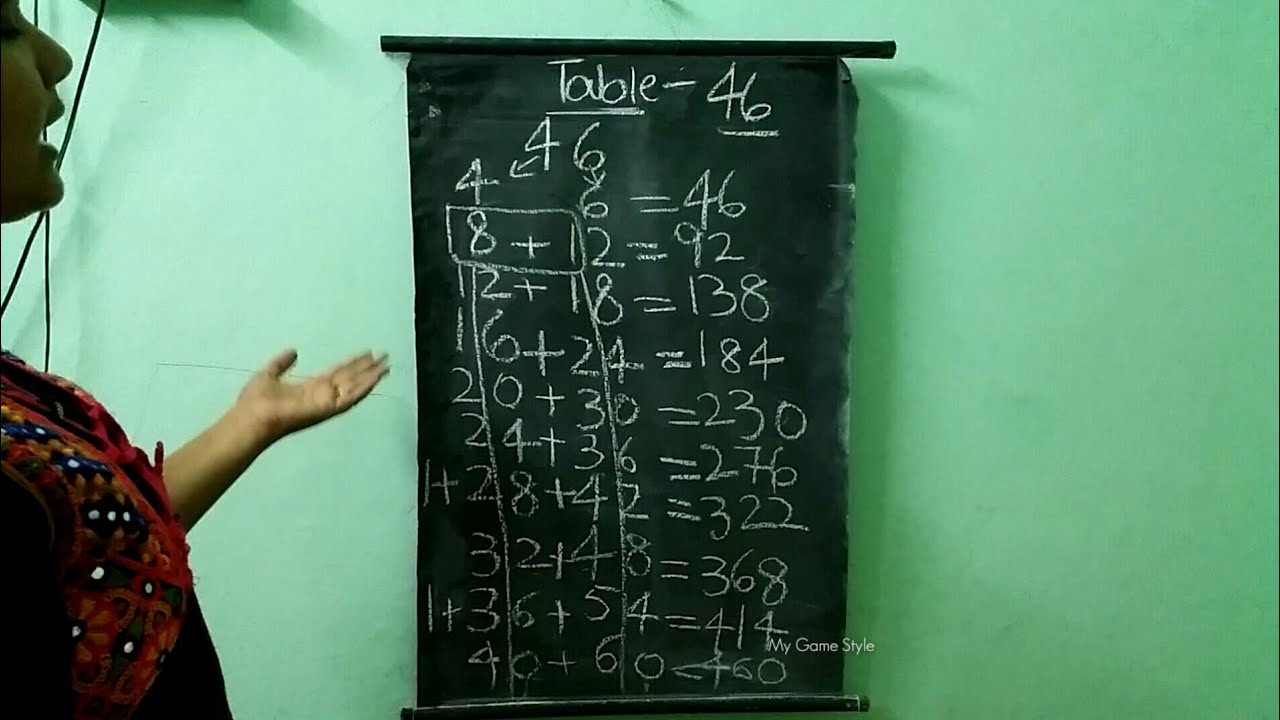 Table - 46
46
4 6 = 46
8 + 12 = 92
12 + 18 = 138
16 + 24 = 184
20 + 30 = 230
24 + 36 = 276
1+28 + 42 = 322
32 + 48 = 368
1+36 + 54 = 414
My Game Style
40 + 60 = 460